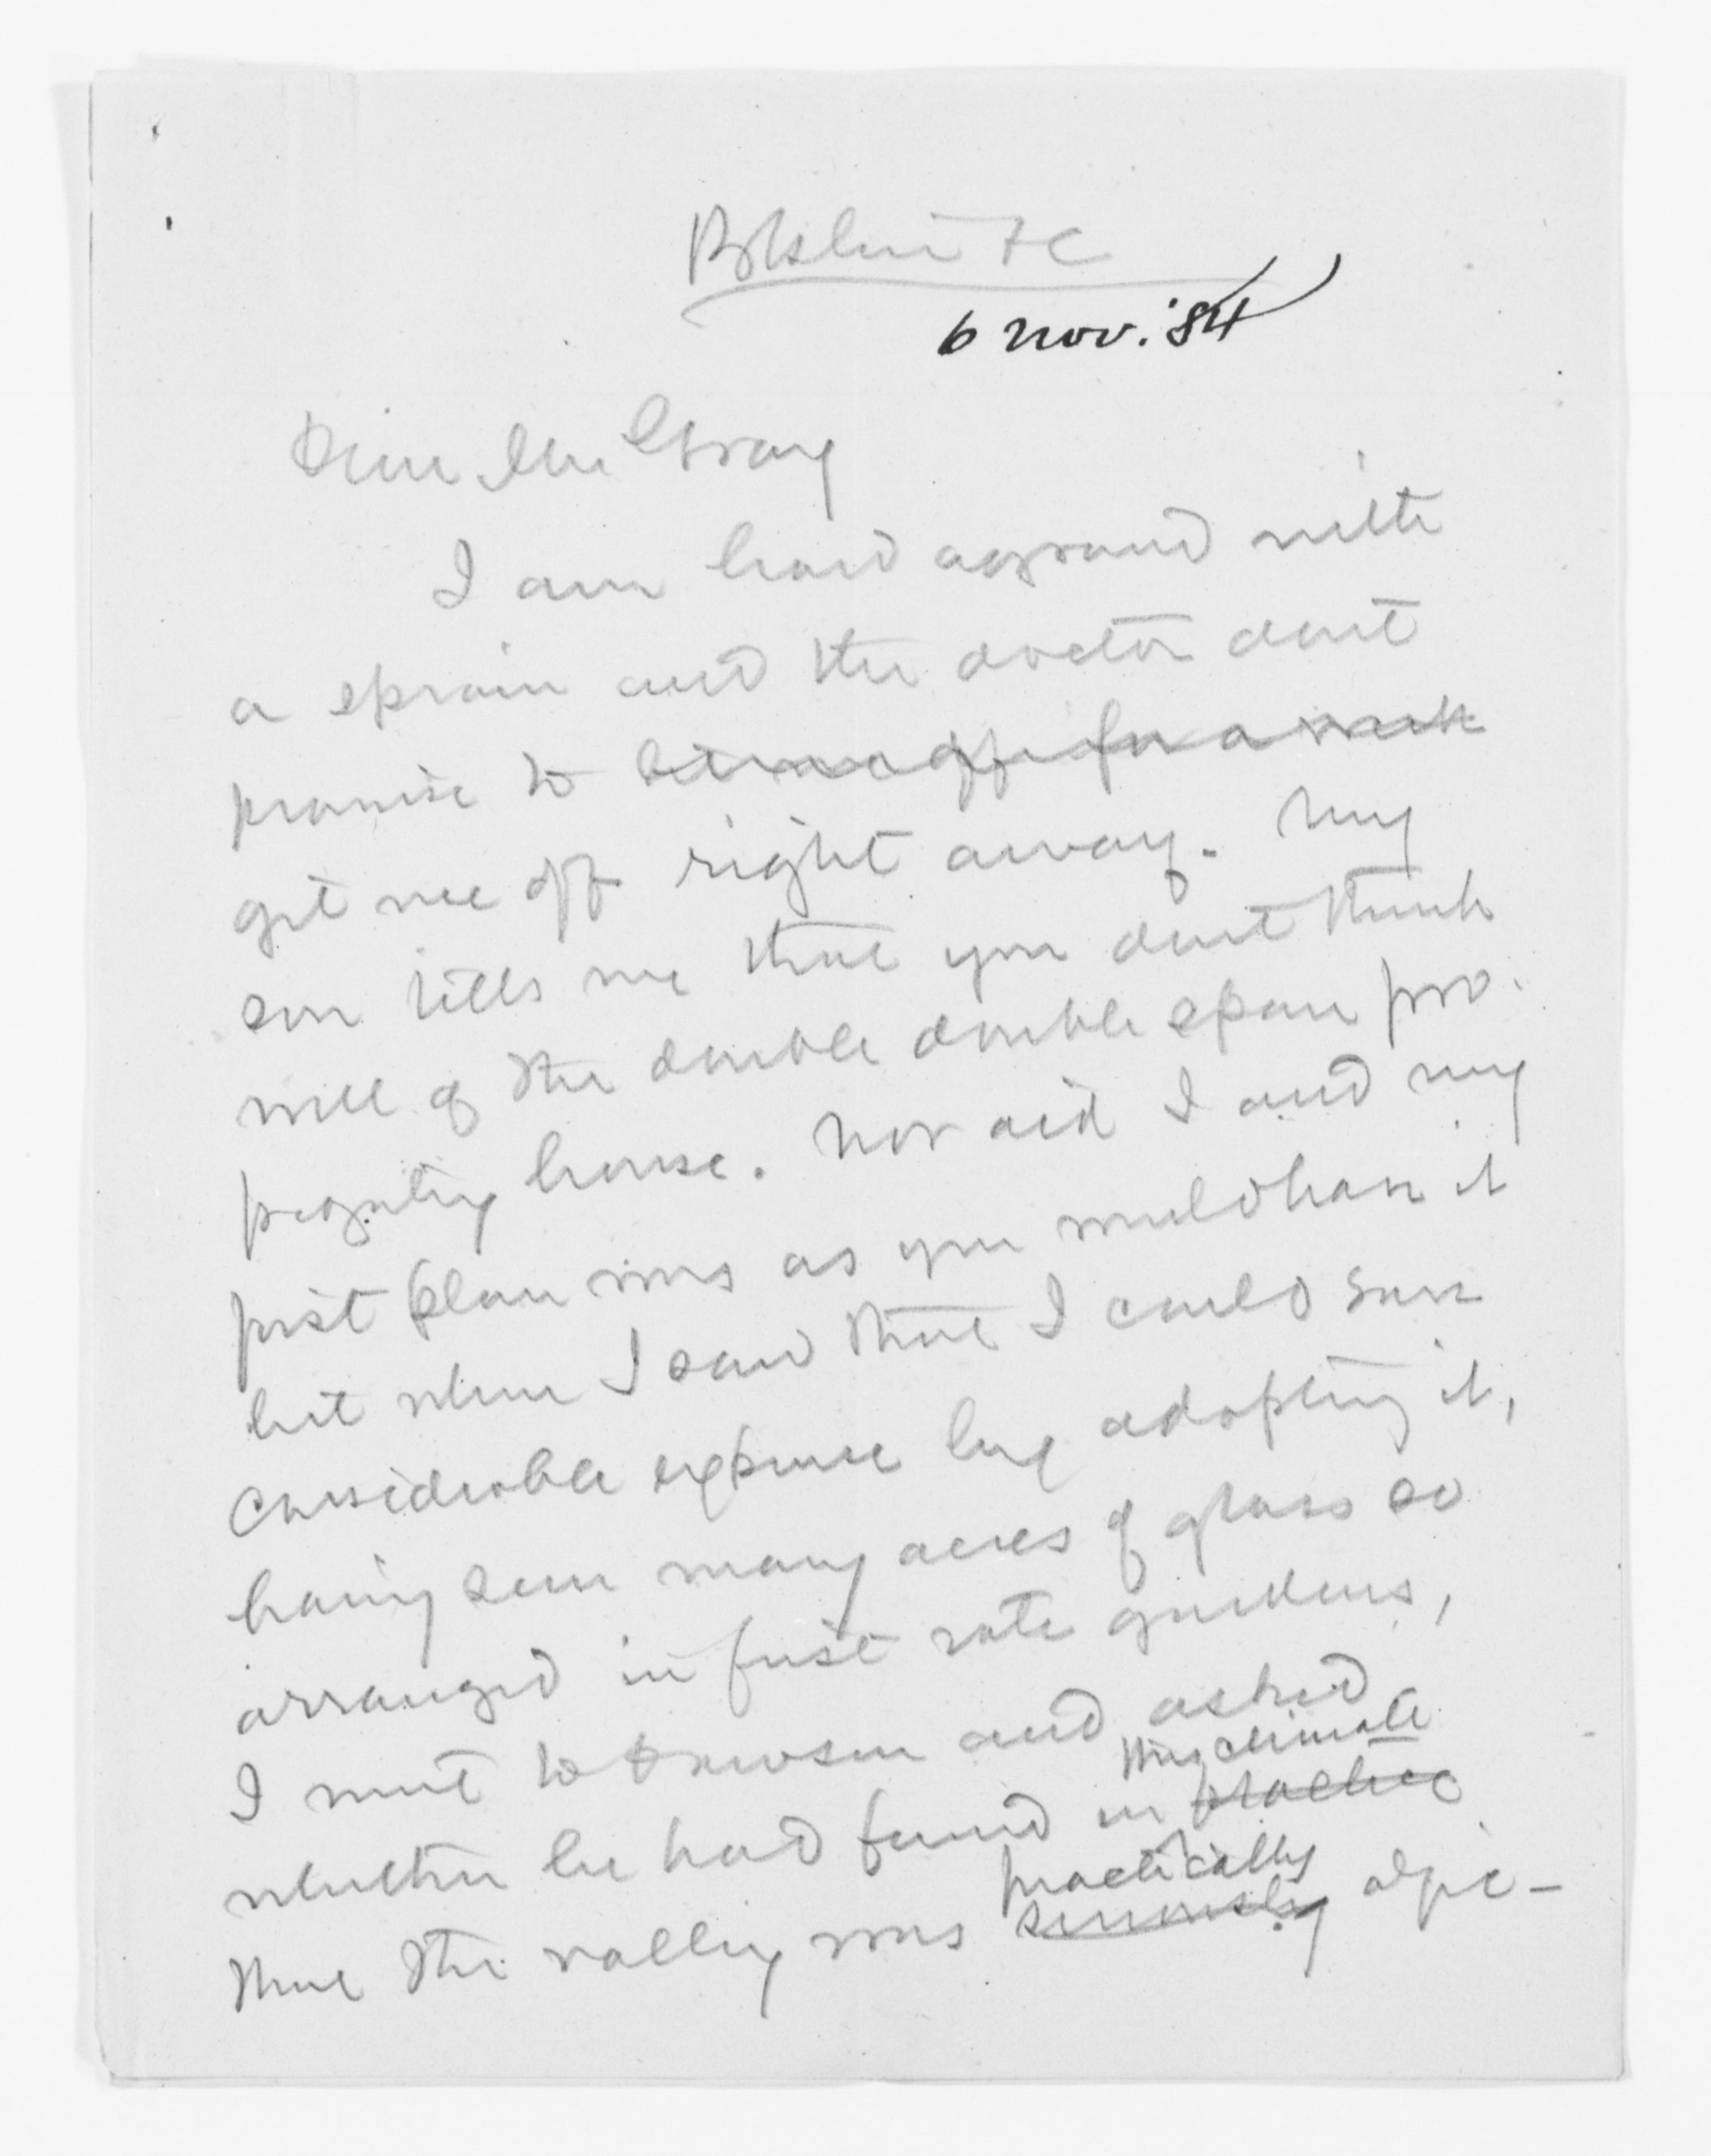 Bkline
6 Nov. '84
Dear Mr Gray
I am hard aground with
a sprain and the doctor dont
promise to let me off for a week
get me off right away. My
son tells me that you dont think
well of the double double span pro-
pagating house. Nor did I and my
first plan was as you would have it
but when I saw that I could save
considerable expense by adopting it,
having seen many acres of glass so
arranged in first rate gardens,
I went to Dawson and asked
this climate
whether he had found in practice
practically
that the valley was seriously obje-